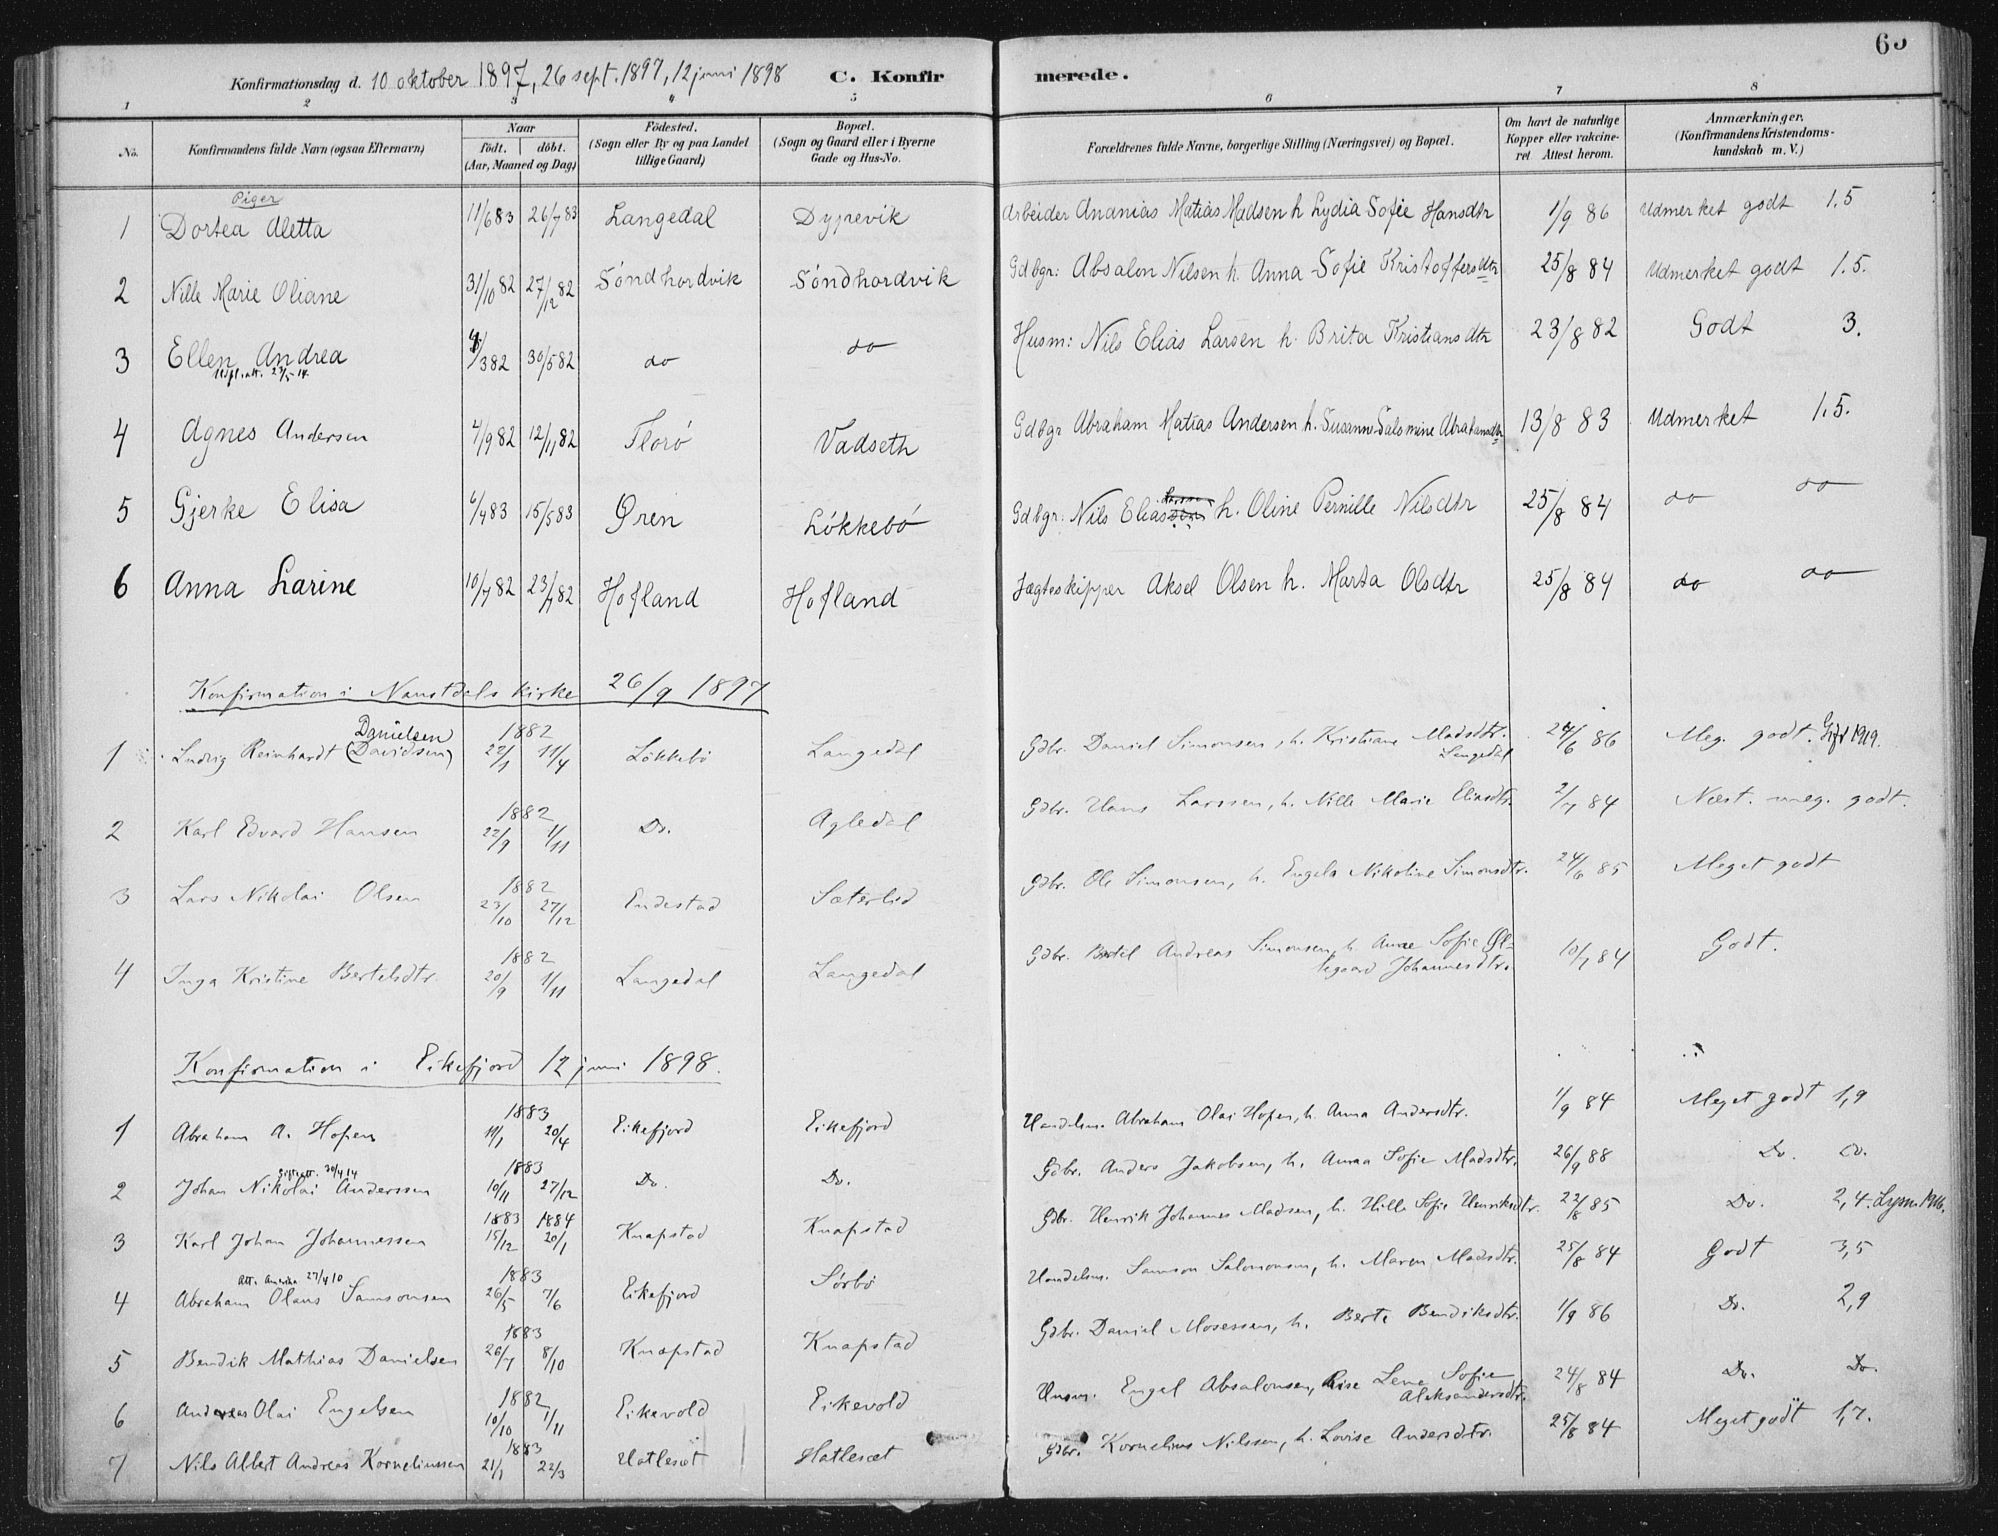 65
Konfirmationsdag d. 10 oktober 1897, 26 sept. 1897, 12 juni 1898 C. Konfirmerede.
1 2 3 4 5 6 7 8
No. Konfirmandens fulde Navn (ogsaa Efternavn) Naar født. døbt. (Aar, Maaned og Dag) Fødested. (Sogn eller By og paa Landet tillige Gaard) Bopæl. (Sogn og Gaard eller i Byerne Gade og Hus-No. Forældrenes fulde Navne, borgerlige Stilling (Næringsvei) og Bopæl. Om havt de naturlige Kopper eller vakcineret Attest herom. Anmærkninger. (Konfirmandens Kristendomskundskab m. V.)
Piger
1 Dortea Aletta 11/6 83 26/7 83 Langedal Dyprevik Arbeider Ananias Matias Madsen h. Lydia Sofie Hansdtr 1/9 86 Udmerket godt 1.5
2 Nille Marie Oliane 31/10 82 27/12 82 Söndhordvik Söndhordvik Gdbgr: Absalon Nilsen h. Anna Sofie Kristoffersdtr 25/8 84 Udmerket godt 1.5.
3 Ellen Andrea /3 82 30/5 82 do do Husm: Nils Elias Larsen h. Brita Kristiansdtr 23/8 82 Godt 3.
att. 23/5 14
4 Agnes Andersen 4/9 82 12/11 82 Florö Vadseth Gdbgr Abraham Matias Andersen h. Susanne Salomine Abrahamsdtr 13/8 83 Udmerket 1.5.
5 Gjerke Elisa /4 83 15/5 83 Øren Lökkebö Gdbgr: Nils Eliassen h. Oline Pernille Nilsdtr 25/8 84 do do
6 Anna Larine 10/7 82 23/7 82 Hofland Hofland Jægteskipper Aksel Olsen h. Marta Olsdtr 25/8 84 do do
Konfirmation i Naustdals kirke 26/9 1897
1 Ludvig Reinhardt (Davidsen) Danielsen 1882 22/1 11/4 Løkkebø Langedal Gdbr. Daniel Simonsen, h. Kristiane Madsdtr. Langedal 24/6 86 Meg. godt. Gift 1919.
2 Karl Edvard Hansen 1882 22/9 1/11 Do. Agledal Gdbr. Hans Larssen, h. Nille Marie Eliasdtr. 2/7 84 Næst. meg. godt.
3 Lars Nikolai Olsen 1882 23/10 27/12 Endestad Sæterlid Gdbr. Ole Simonsen, h. Engela Nikoline Simonsdtr. 24/6 85 Meget godt
4 Inga Kristine Bertelsdtr. 1882 20/9 1/11 Langedal Langedal Gdbr. Bertel Andreas Simonsen, h. Anne Sofie Ølegaard Johannesdtr. 10/7 84 Godt.
Konfirmation i Eikefjord 12 juni 1898.
1 Abraham A. Hopen 1883 11/1 20/4 Eikefjord Eikefjord Handelsm. Abraham Olai Hopen, h. Anna Andersdtr. 1/9 84 Meget godt 1,9
Giftatt. 30/4 14
2 Johan Nikolai Anderssen 1883 10/11 27/12 Do. Do. Gdbr. Anders Jakobsen, h. Anna Sofie Madsdtr. 26/9 88 Do. do.
3 Karl Johan Johannessen 1883 15/12 1884 20/1 Knapstad Knapstad Gdbr. Henrik Johannes Madsen, h. Hille Sofie Henriksdtr. 22/8 85 Do. 2,4. Lysn. 1916.
Att. Amerika 27/4 10
4 Abraham Olaus Samsonsen 1883 26/5 7/6 Eikefjord Sørbø Handelsm. Samson Salomonsen, h. Maren Madsdtr. 25/8 84 Godt 3,5
5 Bendik Mathias Danielsen 1883 26/7 8/10 Knapstad Knapstad Gdbr. Daniel Mosessen, h. Berte Bendiksdtr. 1/9 86 Do. 2,9
6 Andreas Olai Engelsen 1882 10/10 1/11 Eikevold Eikevold Husm. Engel Absalonsen, Lene Sofie Aleksandersdtr. 24/8 84 Do. Do.
7 Nils Albert Andreas Korneliussen 1883 21/1 22/3 Hatleset Hatlesæt Gdbr. Kornelius Nilssen, h. Lovise Andersdtr. 25/8 84 Meget godt 1,7.